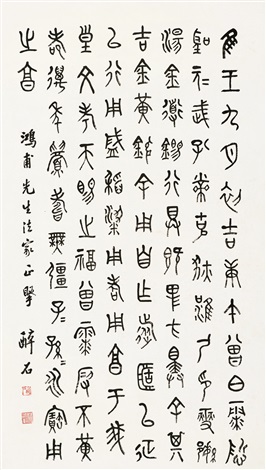 隹王九月初吉庚午曾白霥悊
聖元武孔黹克狄淮夷印燮繁
湯金道錫行具既卑方余擇其
吉金黃鑪余用自乍旅簠以征
以行用盛稻粱用孝用享于我
皇文考天賜之福曾霥叚不黃
耇萬年眉壽無疆子=孫=永寶用
之享
鴻甫先生法家正擘 醉石